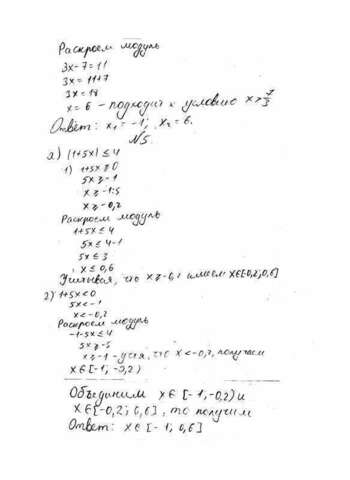 Раскроем модуль
3x-7=11
3x=11+7
3x=18
x=6 - подходит к условию x>7/3
Ответ: x₁=-1; x₂=6.
N5.
а) |1+5x|≤4
1) 1+5x≥0
5x≥-1
x≥-1:5
x≥-0,2
Раскроем модуль
1+5x≤4
5x≤4-1
5x≤3
x≤0,6
Учитывая, что x≥-0, имеем x∈[-0,2;0,6]
2) 1+5x<0
5x<-1
x<-0,2
Раскроем модуль
-1-5x≤4
5x≥-5
x≥-1 - учит, что x<-0,2, получаем
x∈[-1,-0,2)
Объединим x∈[-1,-0,2) и
x∈[-0,2; 0,6], то получим
Ответ: x∈[-1; 0,6]